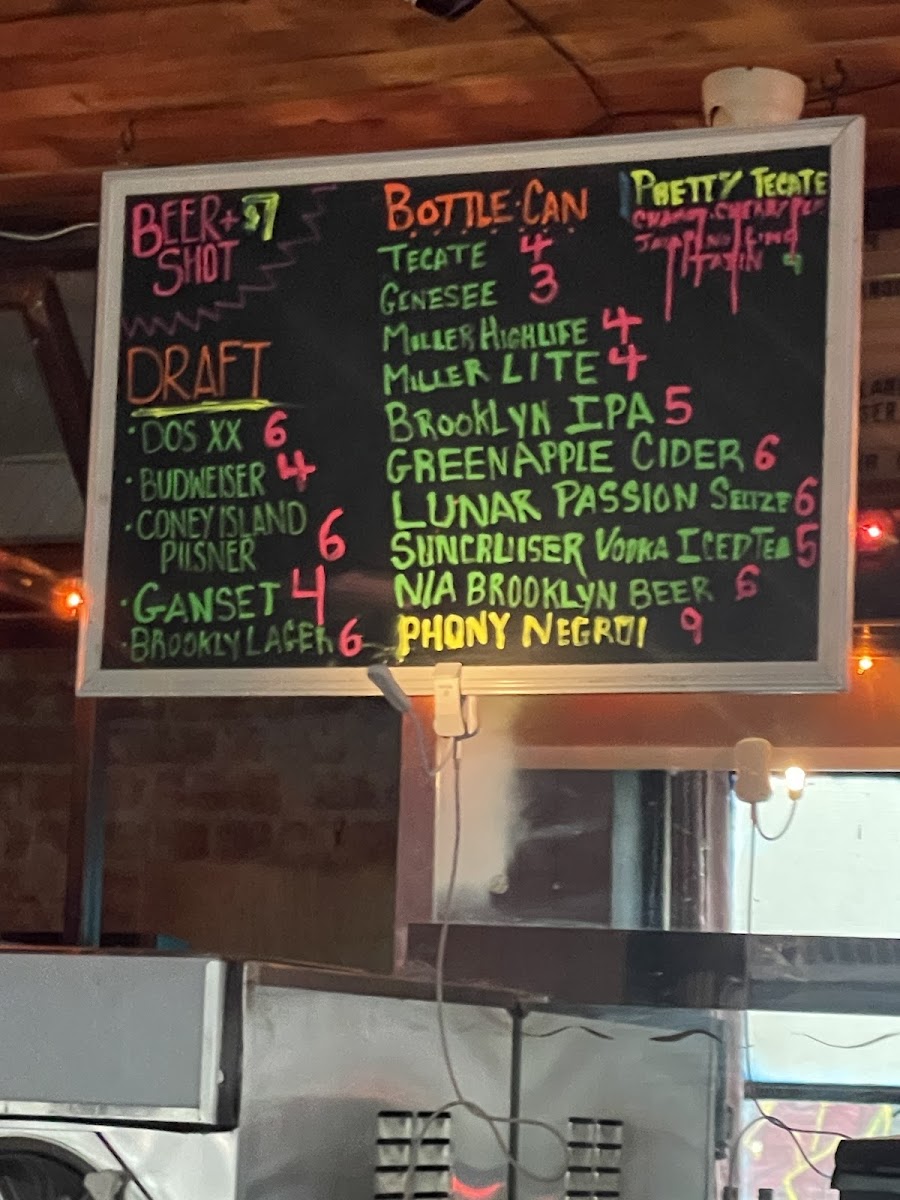 BEER + $7
SHOT
DRAFT
· DOS XX 6
· BUDWEISER 4
· CONEY ISLAND
PILSNER 6
· GANSET 4
· BROOKLY LAGER 6
BOTTLE·CAN
TECATE 4
GENESEE 3
MILLER HIGHLIFE 4
MILLER LITE 4
BROOKLYN IPA 5
GREENAPPLE CIDER 6
LUNAR PASSION 6
SUNCRUISER VODKA ICED TEA 5
N/A BROOKLYN BEER 6
PHONY NEGRONI 9
PRETTY TECATE
TAJIN 9